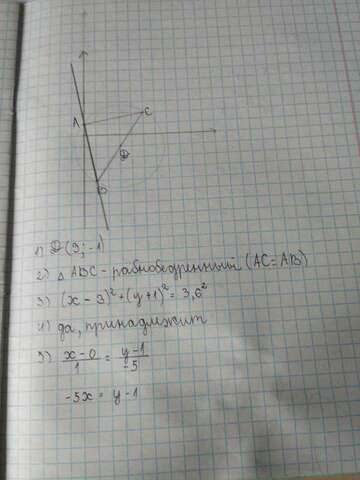 A
C
D
B
1) D(3; -1)
2) △ABC - равнобедренный (AC=AB)
3) (x - 3)² + (y+1)² = 3,6²
4) да, принадлежит
5) x - 0 / 1 = y - 1 / -5
-5x = y - 1